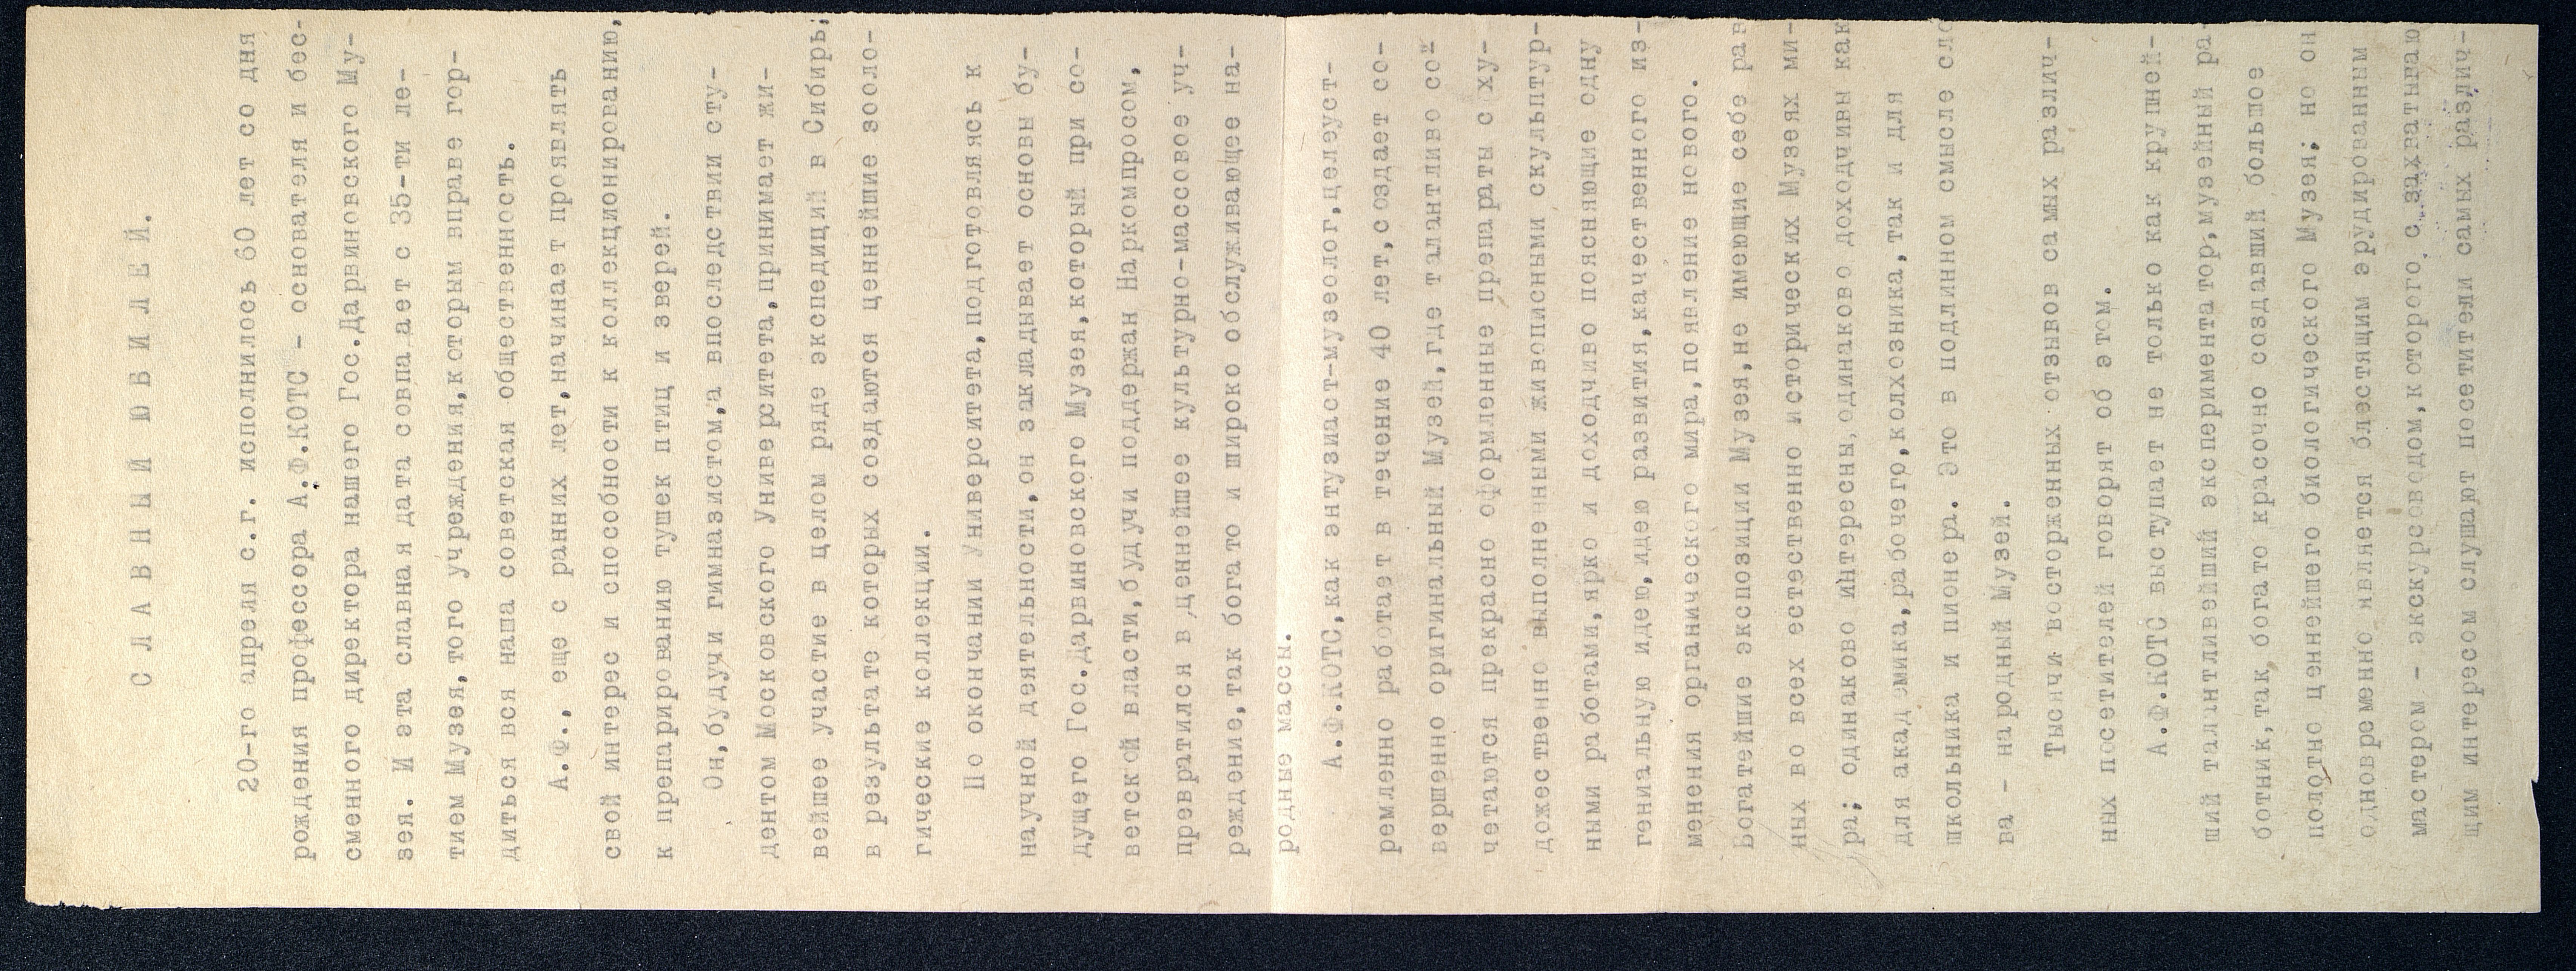 СЛАВНЫЙ ЮБИЛЕЙ.
20-го апреля с.г. исполнилось 60 лет со дня
рождения профессора А.Ф.КОТС - основателя и бес-
сменного директора нашего Гос.Дарвиновского Му-
зея. И эта славная дата совпадает с 35-ти ле-
тием Музея,того учреждения,которым вправе гор-
диться вся наша советская общественность.
А.Ф., еще с ранних лет,начинает проявлять
свой интерес и способности к коллекционированию,
к препарированию тушек птиц и зверей.
Он,будучи гимназистом,а впоследствии сту-
дентом Московского Университета,принимает жи-
вейшее участие в целом ряде экспедиций в Сибирь;
в результате которых создаются ценнейшие зооло-
гические коллекции.
По окончании Университета,подготовляясь к
научной деятельности,он закладывает основы бу-
дущего Гос.Дарвиновского Музея,который при со-
ветской власти,будучи поддержан Наркомпросом,
превратился в ценнейшее культурно-массовое уч-
реждение,так богато и широко обслуживающее на-
родные массы.
А.Ф.КОТС,как энтузиаст-музеолог,целеуст-
ремленно работает в течение 40 лет,создает со-
вершенно оригинальный Музей,где талантливо со-
четаются прекрасно оформленные препараты с ху-
дожественно выполненными живописными скульптур-
ными работами,ярко и доходчиво поясняющие одну
гениальную идею,идею развития,качественного из-
менения органического мира,появление нового.
Богатейшие экспозиции Музея,не имеющие себе рав
ных во всех естественно исторических Музеях ми-
ра; одинаково интересны,одинаково доходчивы как
для академика,рабочего,колхозника,так и для
школьника и пионера. Это в подлинном смысле сло
ва - народный Музей.
Тысячи восторженных отзывов самых различ-
ных посетителей говорят об этом.
А.Ф.КОТС выступает не только как крупней-
ший талантливейший экспериментатор,музейный ра-
ботник,так богато красочно создавший большое
полотно ценнейшего биологического Музея; но он
одновременно является блестящим эрудированным
мастером - экскурсоводом,которого, с захватываю
щим интересом слушают посетители самых различ-